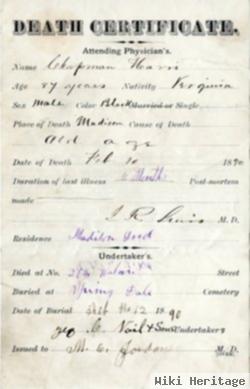 DEATH CERTIFICATE.
Attending Physician's.
Name Chapman Harris
Age 87 years Nativity Virginia
Sex Male Color Black Married or Single
Place of Death Madison Cause of Death
Old age
Date of Death Feb 10 1890
Duration of last illness Month Post-mortem
made
M. D.
Residence Madison Ind
Undertaker's.
Died at No. Street
Buried at Spring Dale Cemetery
Date of Burial Feb 12 1890
Geo C. Vail & Sons Undertakers
Issued to M. C. M. D.
Wiki Heritage